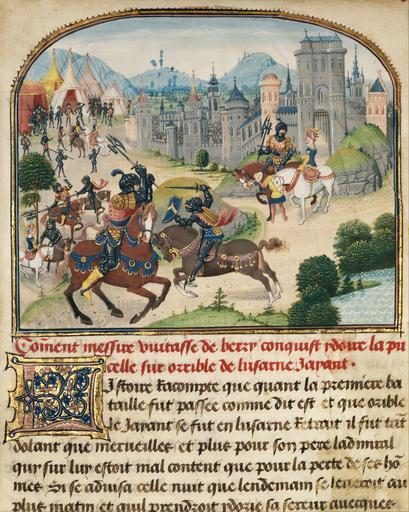 Coment messire vuitasse de berry conquist ydorie la pu
celle sur orrible de lusarne Jayant.
L Istoire racompte que quant la premiere ba
taille fut passee comme dit est et que orible
le Jayant se fut en lusarne Retrait il fut tāt
dolant que merueilles et plus pour son pere ladmiral
qui sur luy estoit mal content que pour la perte de ses hō
mes Si se aduisa celle nuit que lendemain se leueroit au
plus matin et quil prendroit ydorie sa sereur auecques